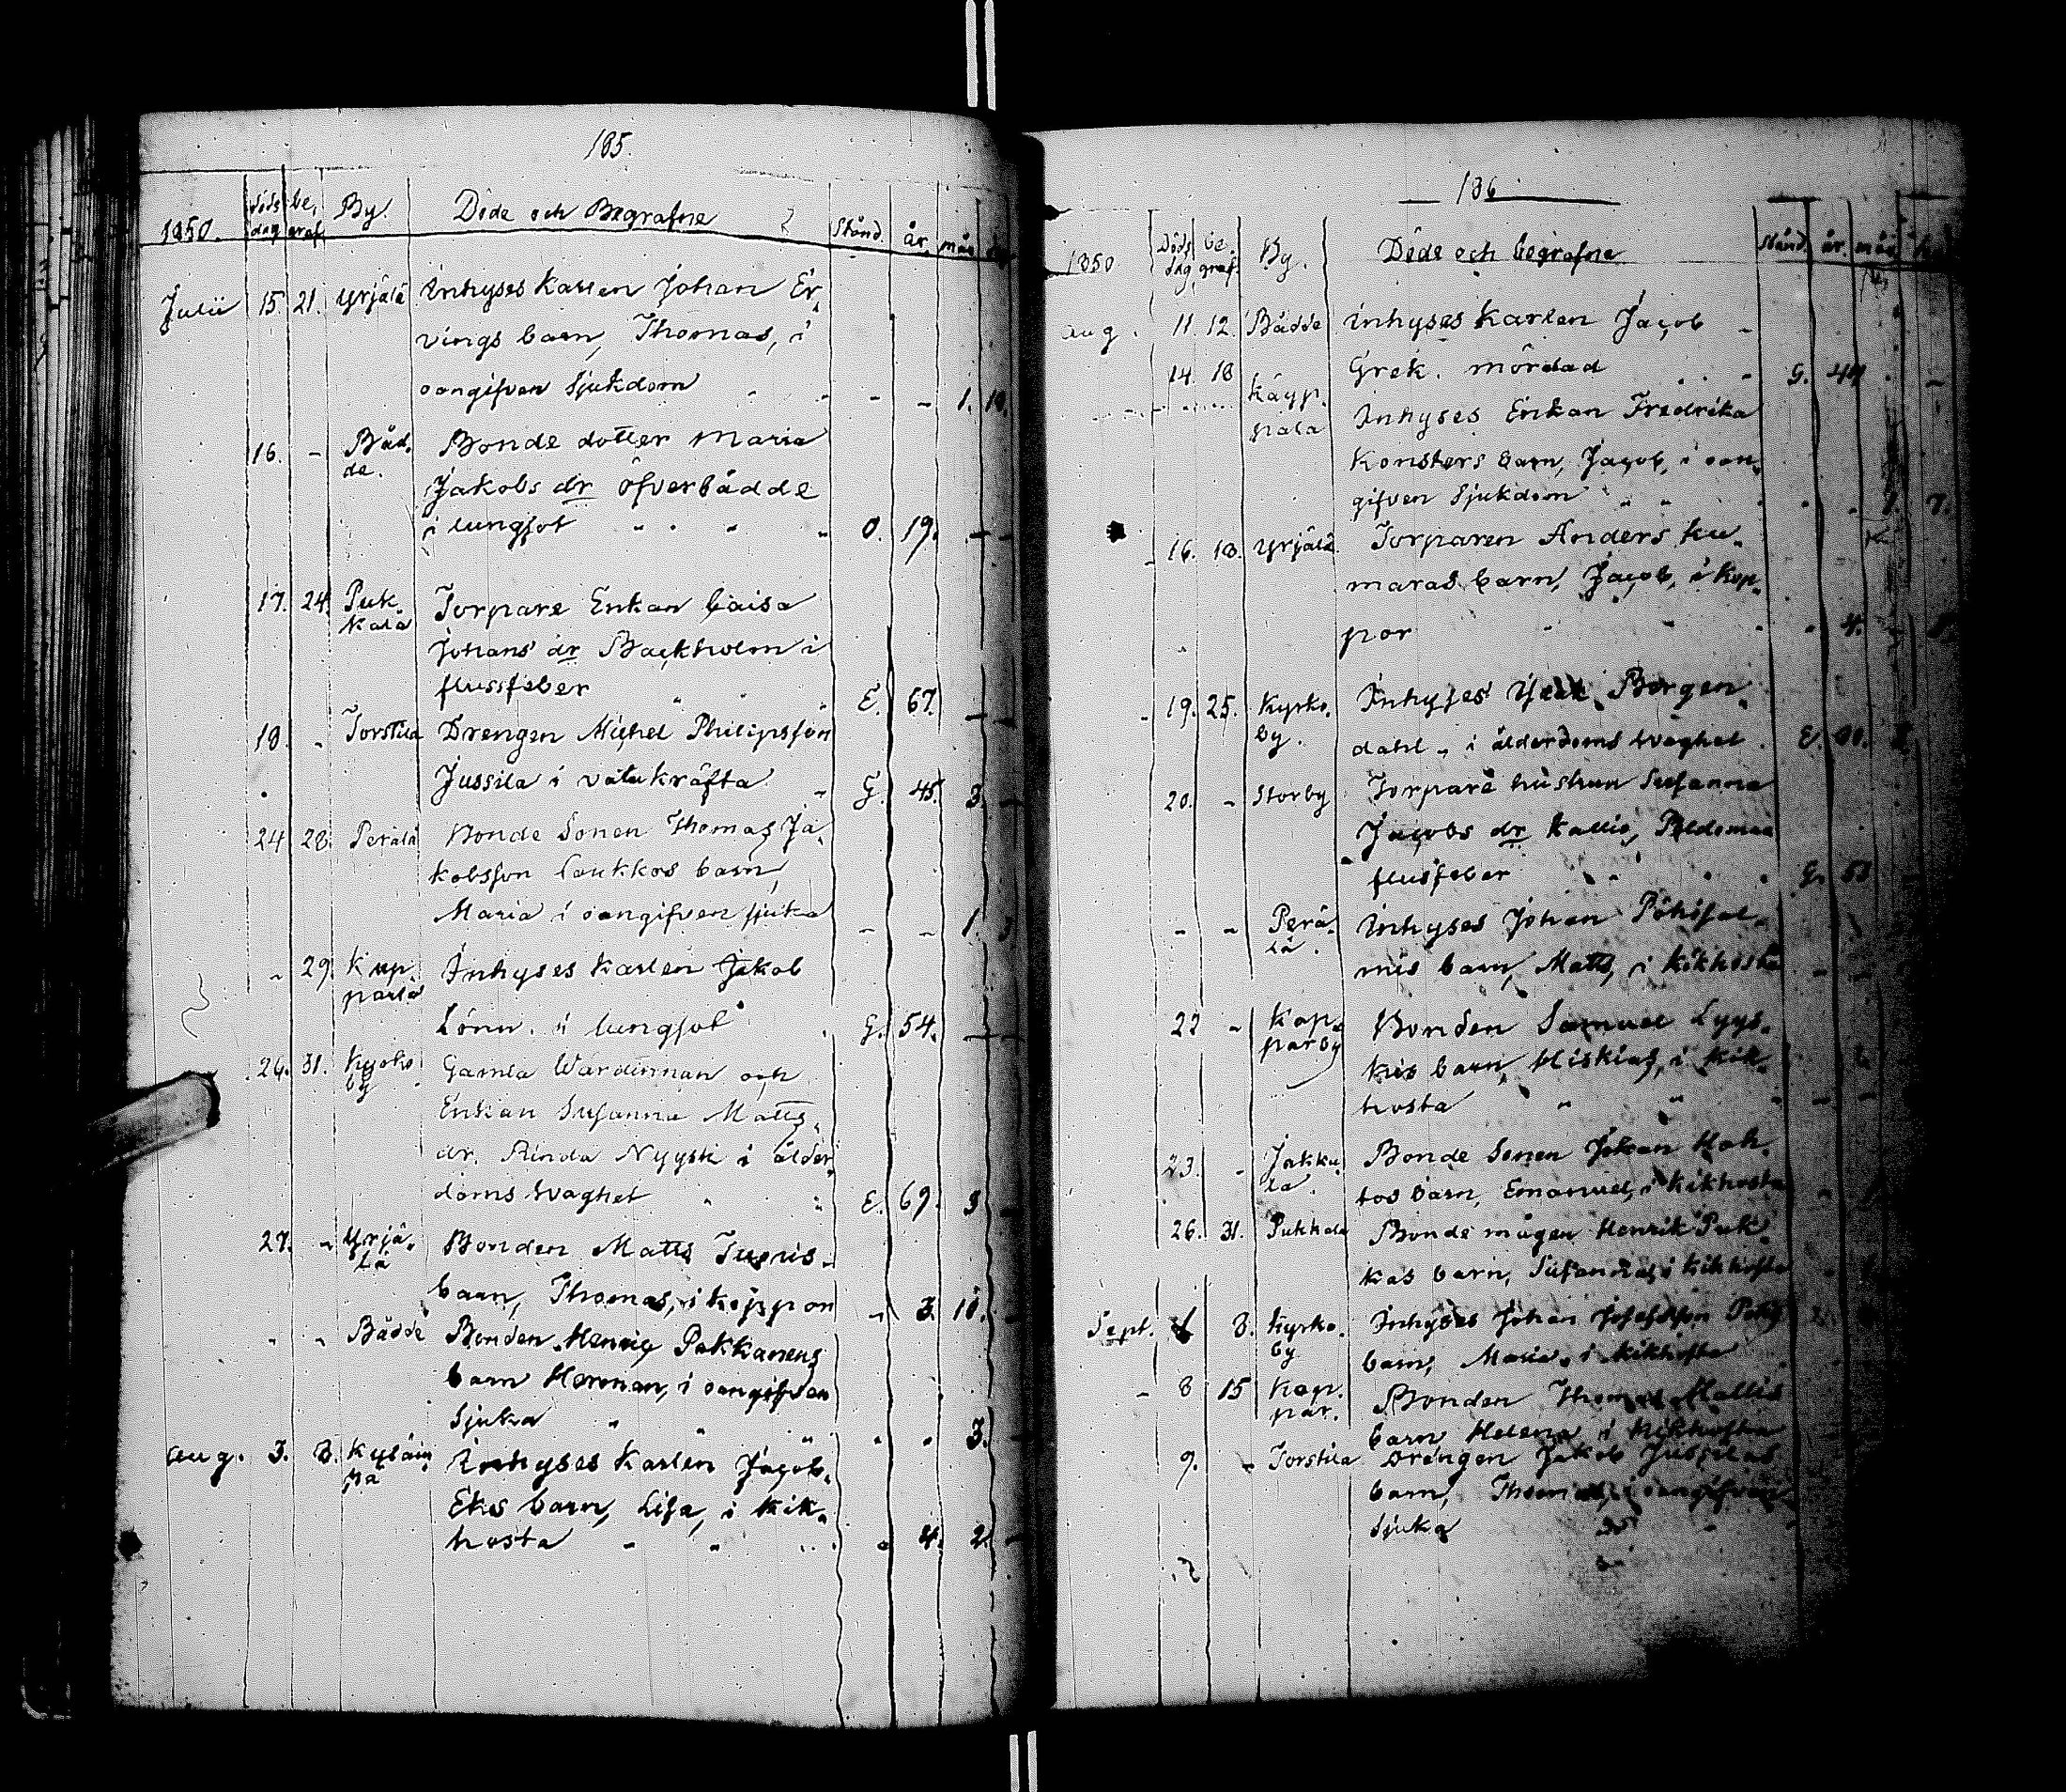 185.
1850. döds dag be, graf. By. Döde och Begrafne Stånd. år. mån
Julii 15. 21. Yrjälä Inhyses Karlen Johan Er-
vings barn, Thomas, i
oangifven Sjukdom - - 1. 10.
16. - Båd-
de. Bonde dotter Maria
Jakobs dr Öfverbådde
i lungsot O. 19. - -
17. 24. Puk-
kala Torpare Enkan Caisa
Johans dr Backholm i
flussfeber E. 67. - -
18. - Torstila Drengen Michel Philipsson
Jussila i vatukräfta G. 45. 3. -
24 28. Perälä Bonde Sonen Thomas Ja-
kobsson Laukkos barn,
Maria i oangifven sjuka - - 1. 3
- 29. Kap-
parla Inhyses Karlen Jakob
Lönn. i lungsot G. 54. - -
26. 31. Kyrko
by Gamla Wärdinnan och
Enkan Susanna Matts
dr. Rinda Nyysti i ålder-
doms svaghet E. 69. 9 -
27. - Yrjä-
lä Bonden Matts Tuuris
barn, Thomas, i koppor - 3. 10. -
- - Bådde Bonden Henric Pakkanens
barn Herman, i oangifven
Sjuka - - 3. -
Aug. 3. 8. Kyläin
pä Inhyses Karlen Jacob
Eks barn, Lisa, i kik-
hosta - 4. 2. -
186
1850 Döds dag be graf. By. Döde och begrafne Stånd. år. mån
Aug. 11. 12. Bådde Inhyses Karlen Jacob
Grek. mördad G. 44 -
14. 18 Käpp-
pälä Inhyses Enkan Fredrika
Konsters barn, Jacob, i oan-
gifven Sjukdom - - 1. 7.
16. 18. Yrjälä. Torparen Anders Ku-
maras barn, Jacob, i Kop-
por - 4.
19. 25. Kyrko-
by. Inhyses Borgen-
dahl, i ålderdoms svaghet. E.
20. - Storby Torpare hustrun Susanna
Jacobs dr Kallio,
flussfeber G. 53
- - Perä-
lä. Inhyses Johan Pohjsal-
mis barn, Matts, i kikhosta - -
22 - Kap-
parby Bonden Samuel Lyys-
kis barn, Hiskias, i kik-
hosta - -
23. - Jakku-
la. Bonde Sonen Johan Hah-
tos barn, Emanuel, i kikhosta -
26. 31. Pukkala Bonde mågen Henrik Puk-
kas barn, Susanna, i kikhosta
Sept. 1 8. Kyrko-
by Inhyses Johan Josefsson
barn, Maria, i kikhosta
- 8 15 Kap-
par. Bonden Thomas Mallis
barn Helena i kikhosta
9. - Torstila Drengen Jakob Jussilas
barn, Thomas, i oangifven
Sjuka